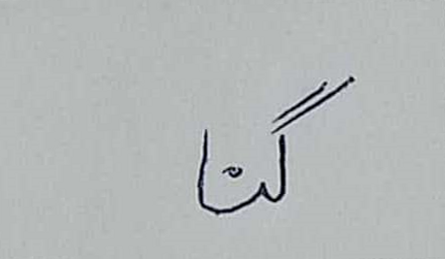 گنا